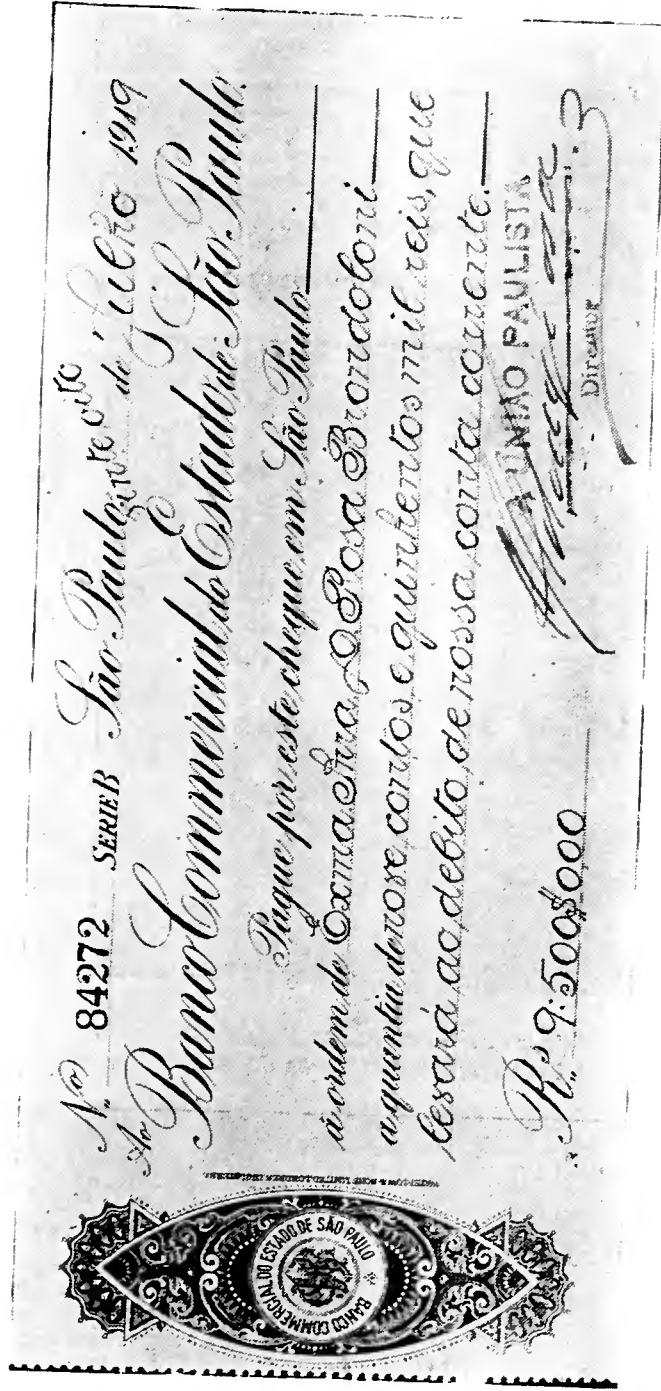 Nº 84272 SERIE B São Paulo, vinte oito de Julho 1919
Ao Banco Commercial do Estado de São Paulo
Pague por este cheque em São Paulo
á ordem de Exma Snra D Rosa Brondoloni
a quantia de nove contos e quinhentos mil reis, que
levará ao debito de nossa conta corrente.
Rs 9:500$000
A UNIÃO PAULISTA
Director
BANCO COMMERCIAL DO ESTADO DE SÃO PAULO
WATERLOW & SONS LIMITED, LONDRES, INGLATERRA.